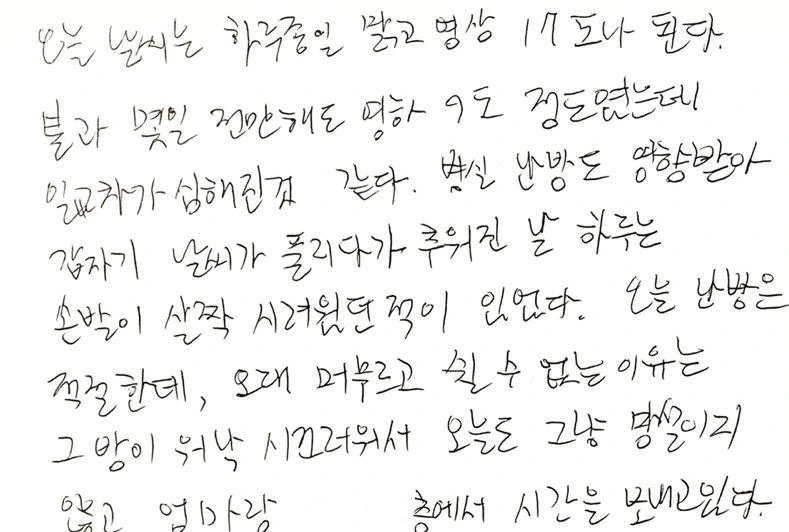 오늘 날씨는 하루종일 맑고 영상 17도나 된다.
불과 몇일 전만해도 영하 9도 정도였는데
일교차가 심해진것 같다. 병실 난방도 영향받아
갑자기 날씨가 풀리다가 추워진 날 하루는
손발이 살짝 시려웠던 적이 있었다. 오늘 난방은
적절한데, 오래 머무르고 쉴 수 없는 이유는
그 방이 워낙 시끄러워서 오늘도 그냥 병실이지
않고 엄마랑 층에서 시간을 보내고있다.